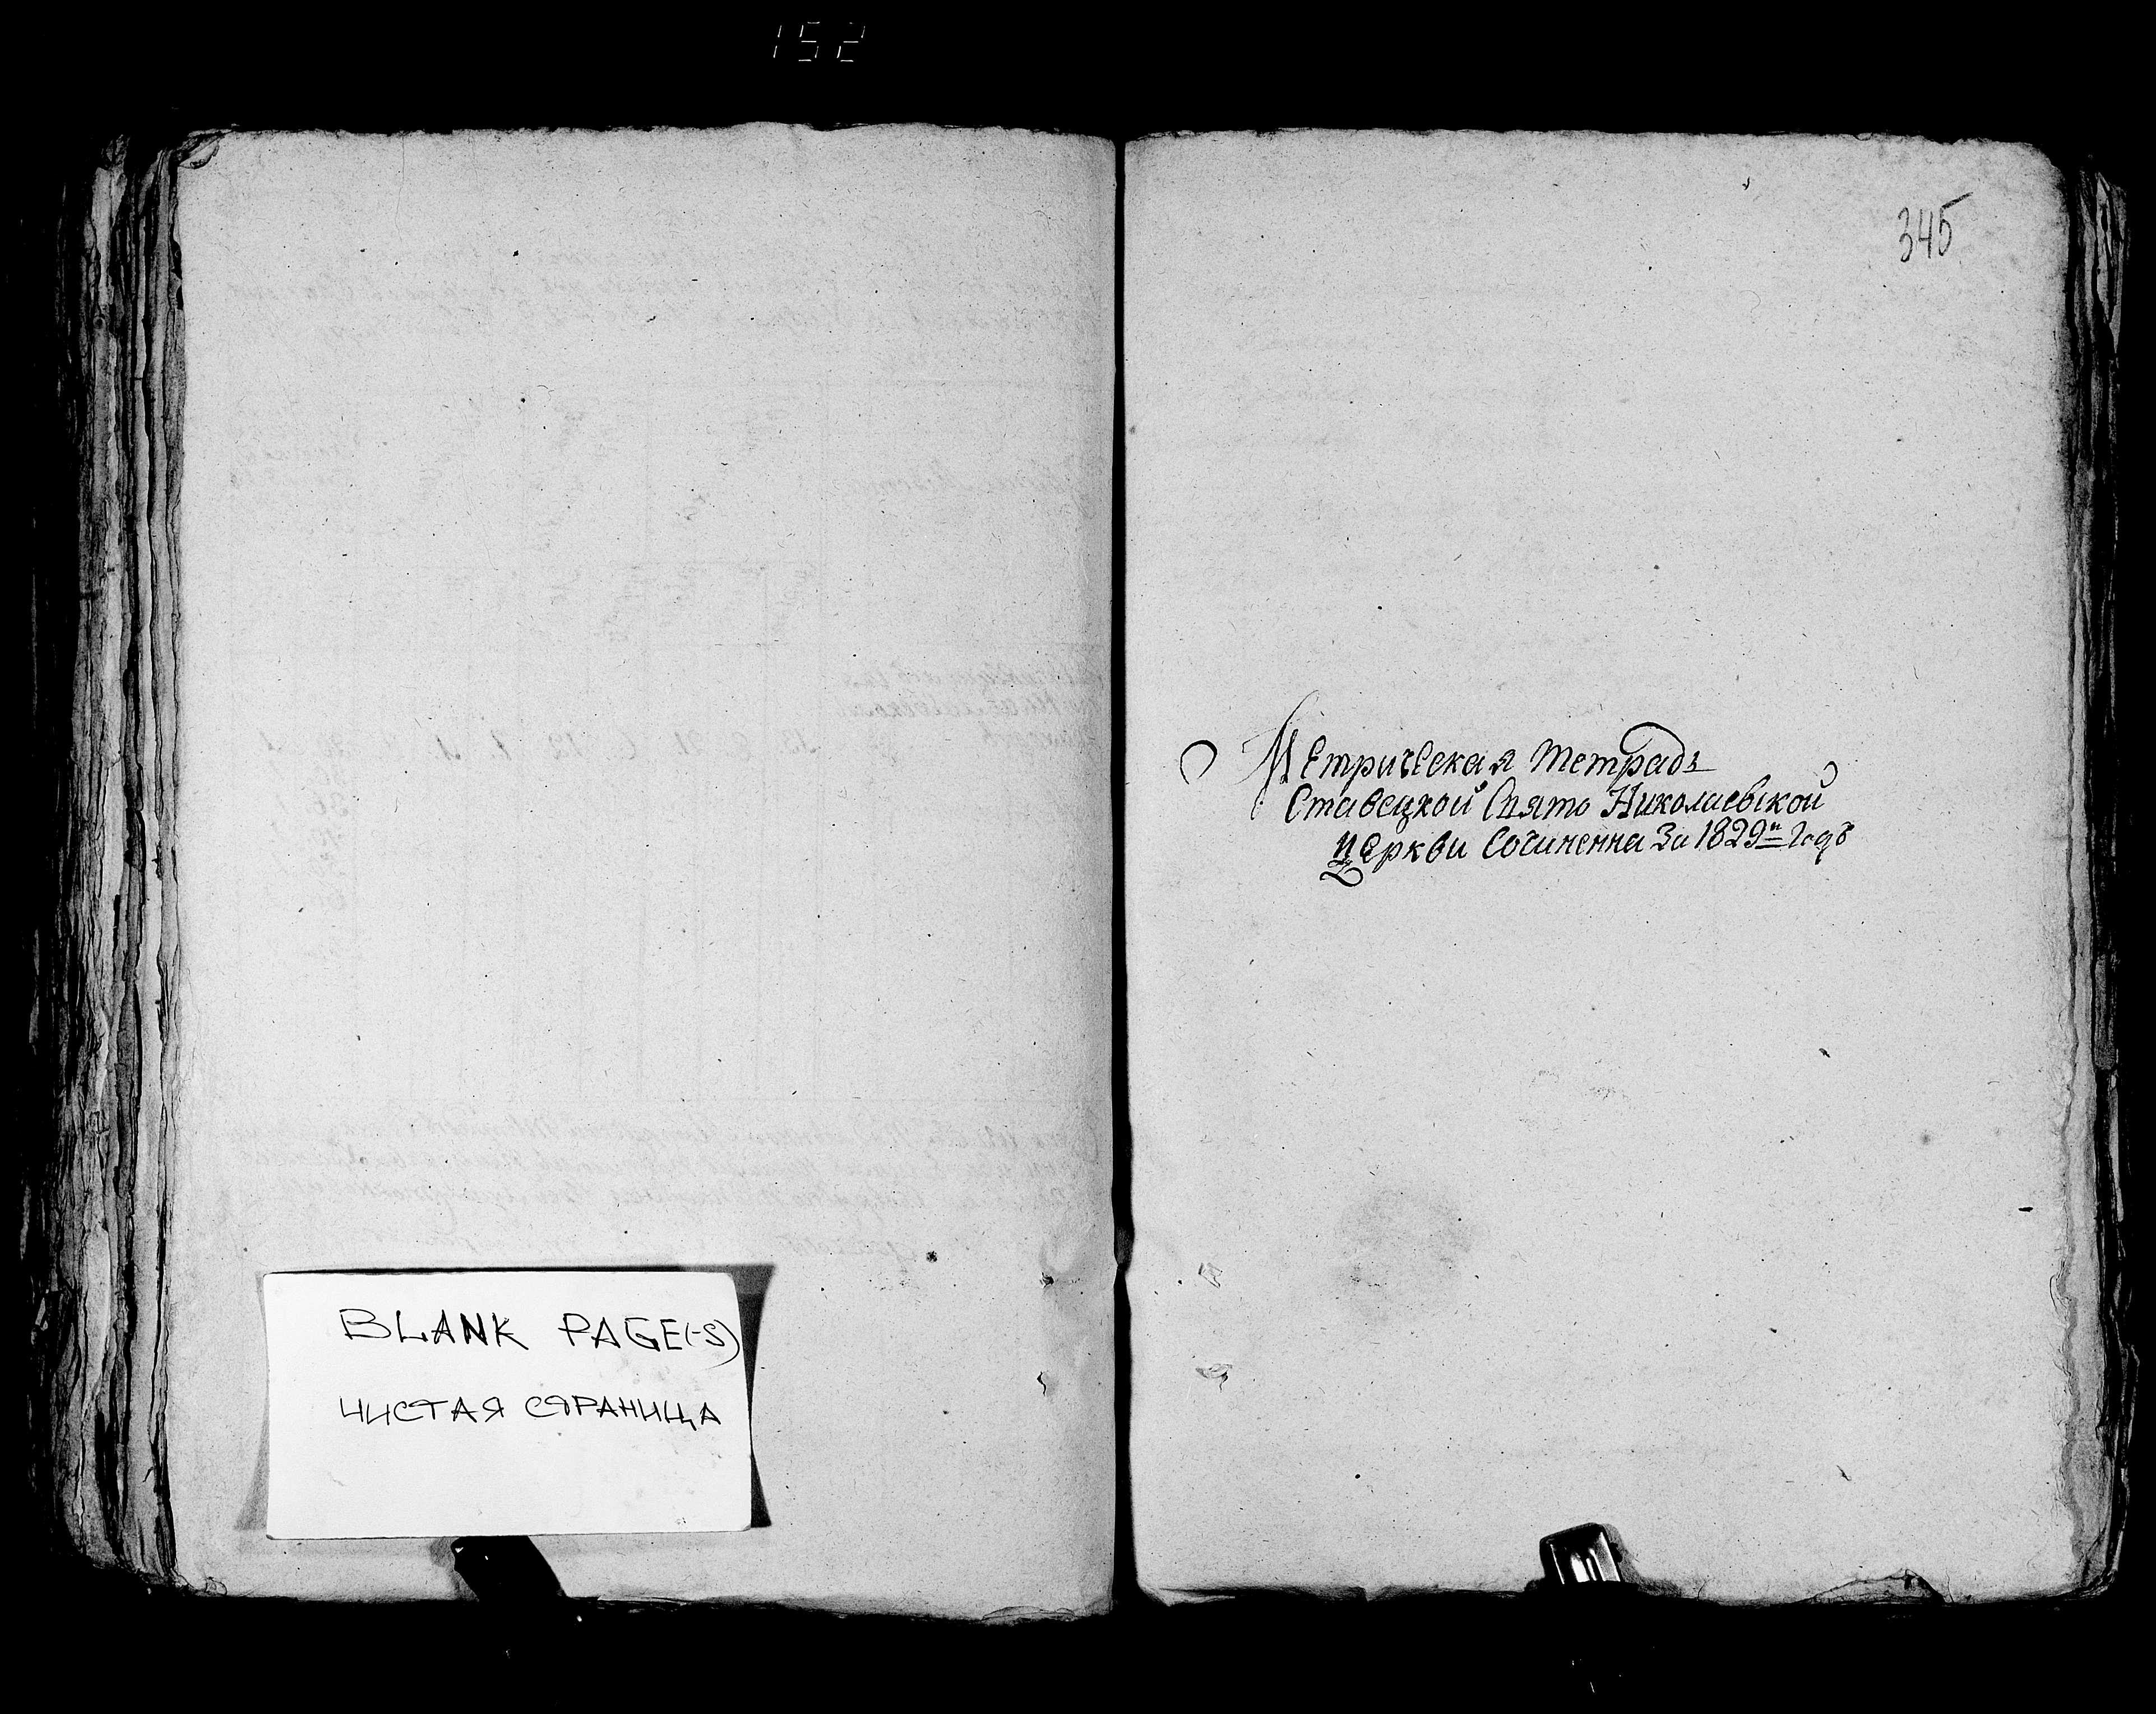 152
345
Метрическая Тетрадь
Ставецкой Свято Николаевской
Церкви Сочиненна За 1829й Годъ
BLANK PAGE(-S)
ЧИСТАЯ СТРАНИЦА